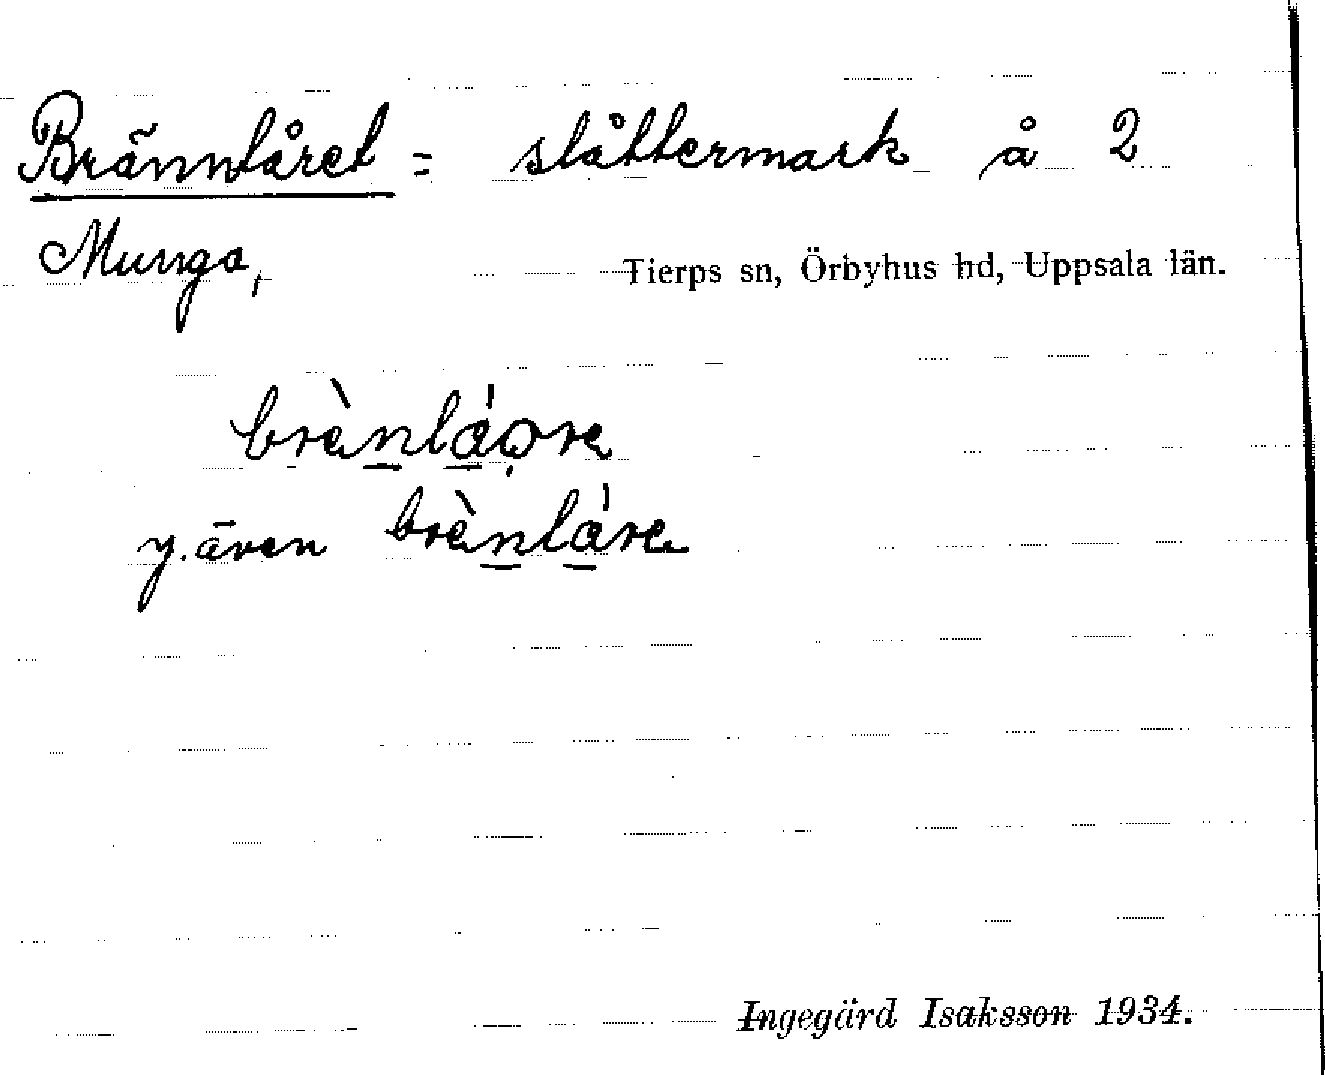 Brännlåret = slåttermark å 2
Munga, Tierps sn, Örbyhus hd, Uppsala län.
brènláore
y. även brènláre
Ingegärd Isaksson 1934.